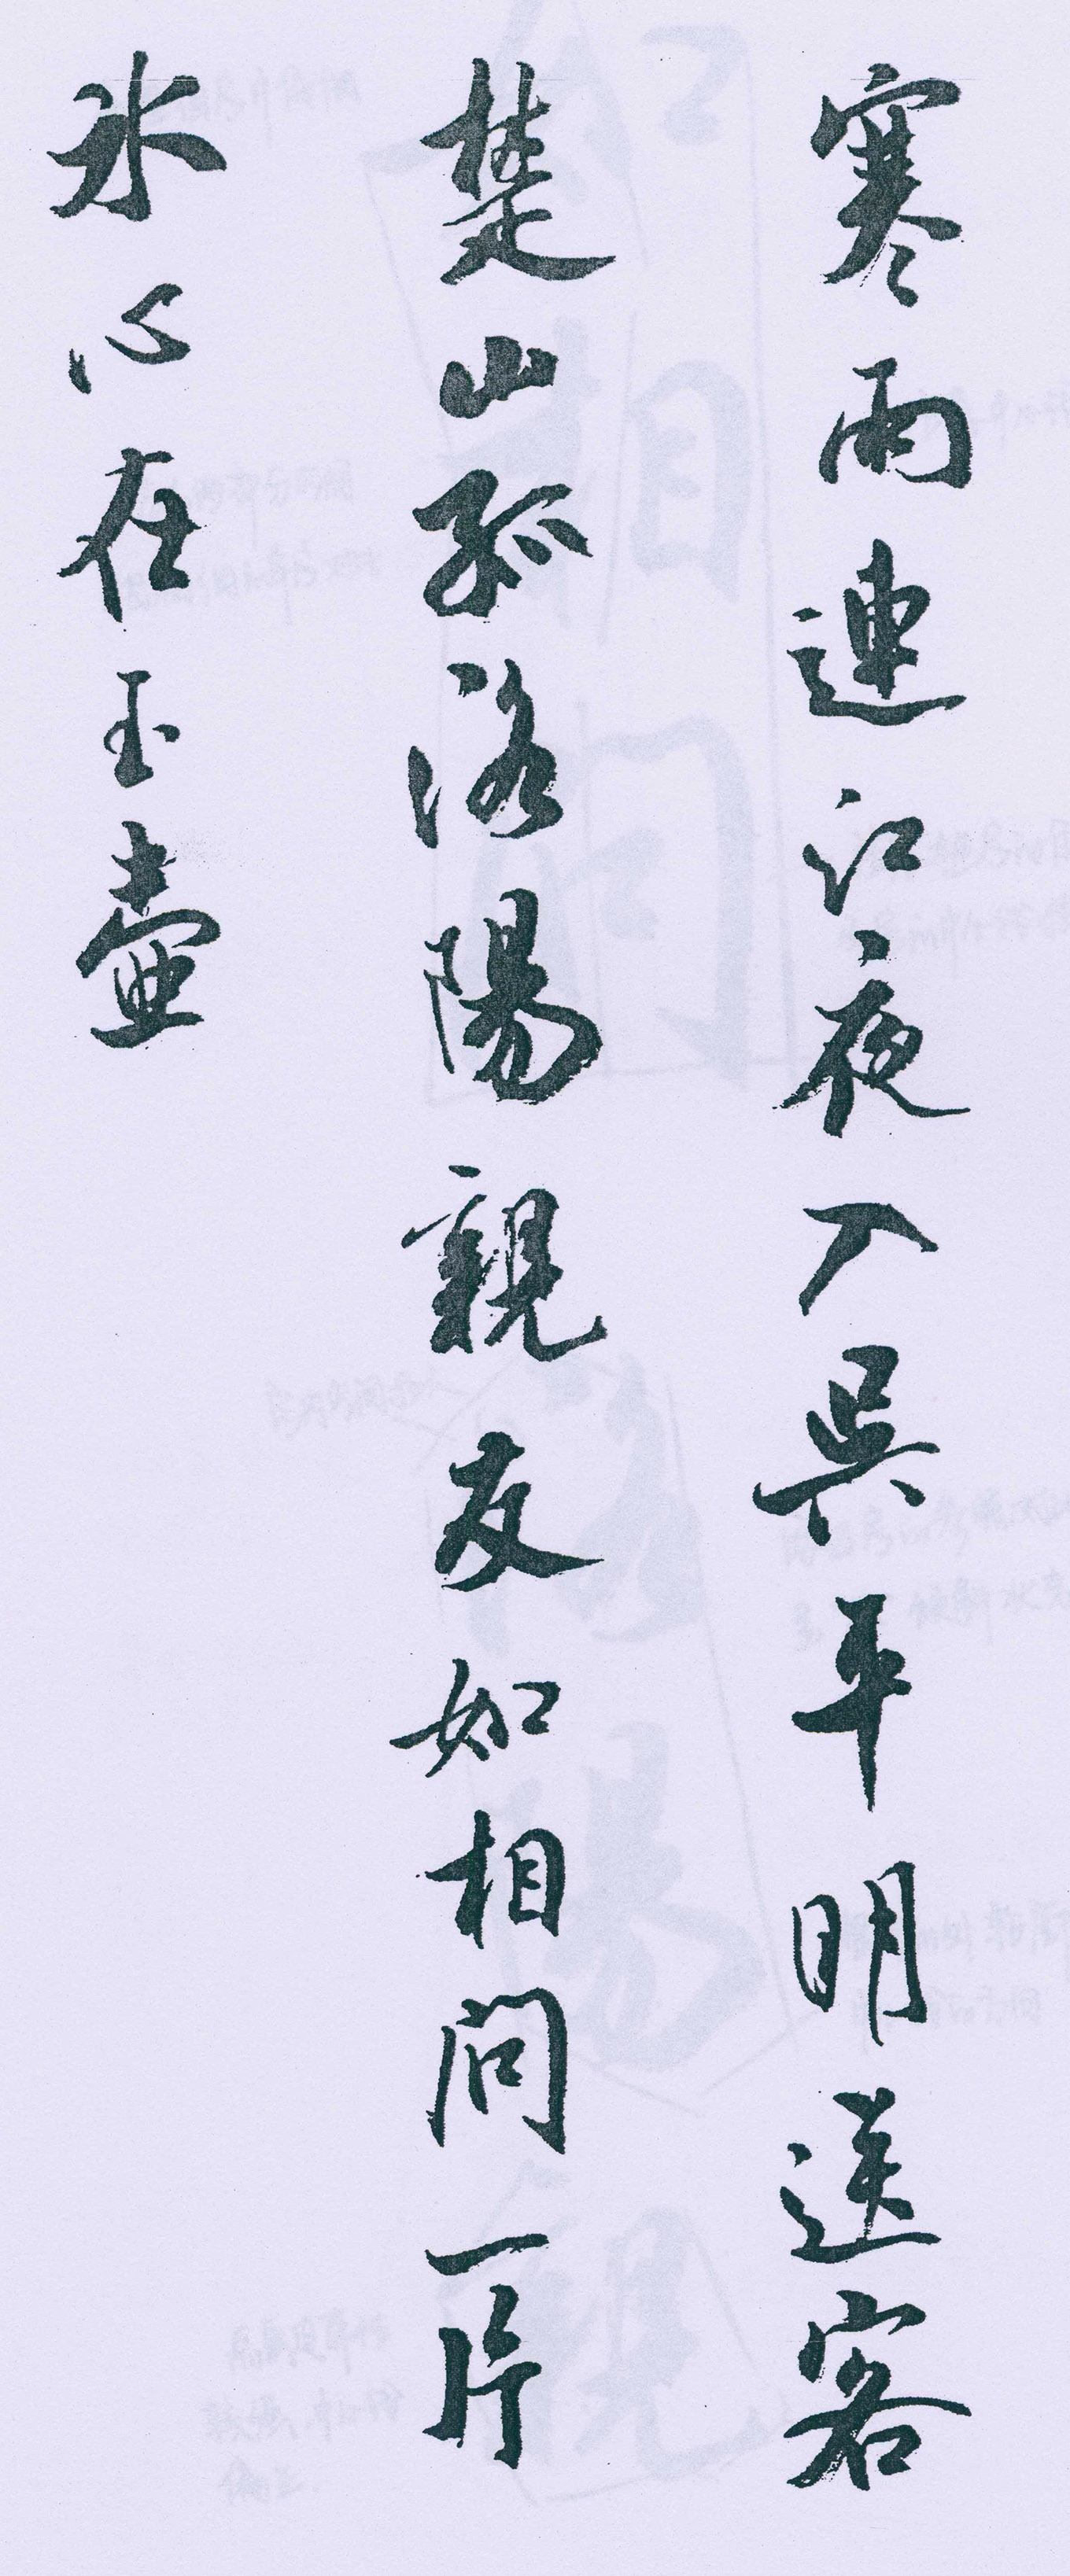 寒雨連江夜入吳平明送客
楚山孤洛陽親友如相問一片
冰心在玉壺